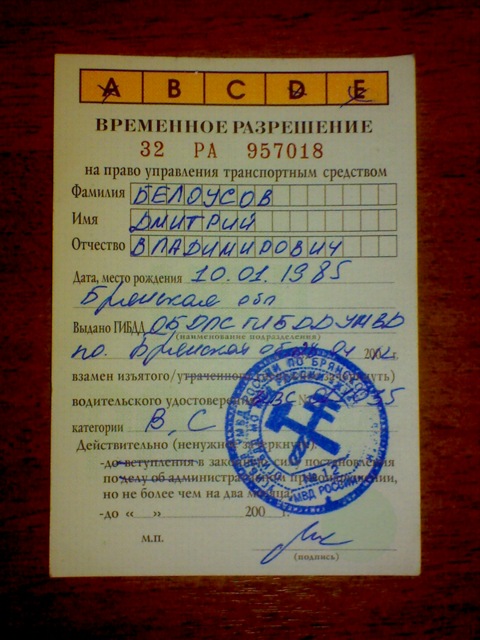 A B C D E
ВРЕМЕННОЕ РАЗРЕШЕНИЕ
32 РА 957018
на право управления транспортным средством
Фамилия БЕЛОУСОВ
Имя ДМИТРИЙ
Отчество ВЛАДИМИРОВИЧ
Дата, место рождения 10.01.1985
Брянская обл
Выдано ГИБДД ОБДПС ГИБДД УМВД
(наименование подразделения)
по Брянской обл 200 г.
взамен изъятого/утраченного
водительского удостоверения
категории В, С
Действительно (ненужное зачеркнуть):
-до вступления в законную силу постановления
по делу об административном правонарушении,
но не более чем на два месяца
-до « » 200 г.
м.п.
(подпись)